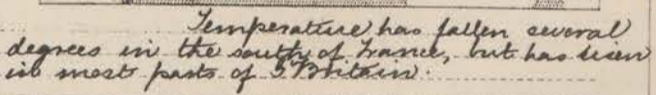 Temperature has fallen several
degrees in the south of France, but has risen
in most parts of Gt Britain.